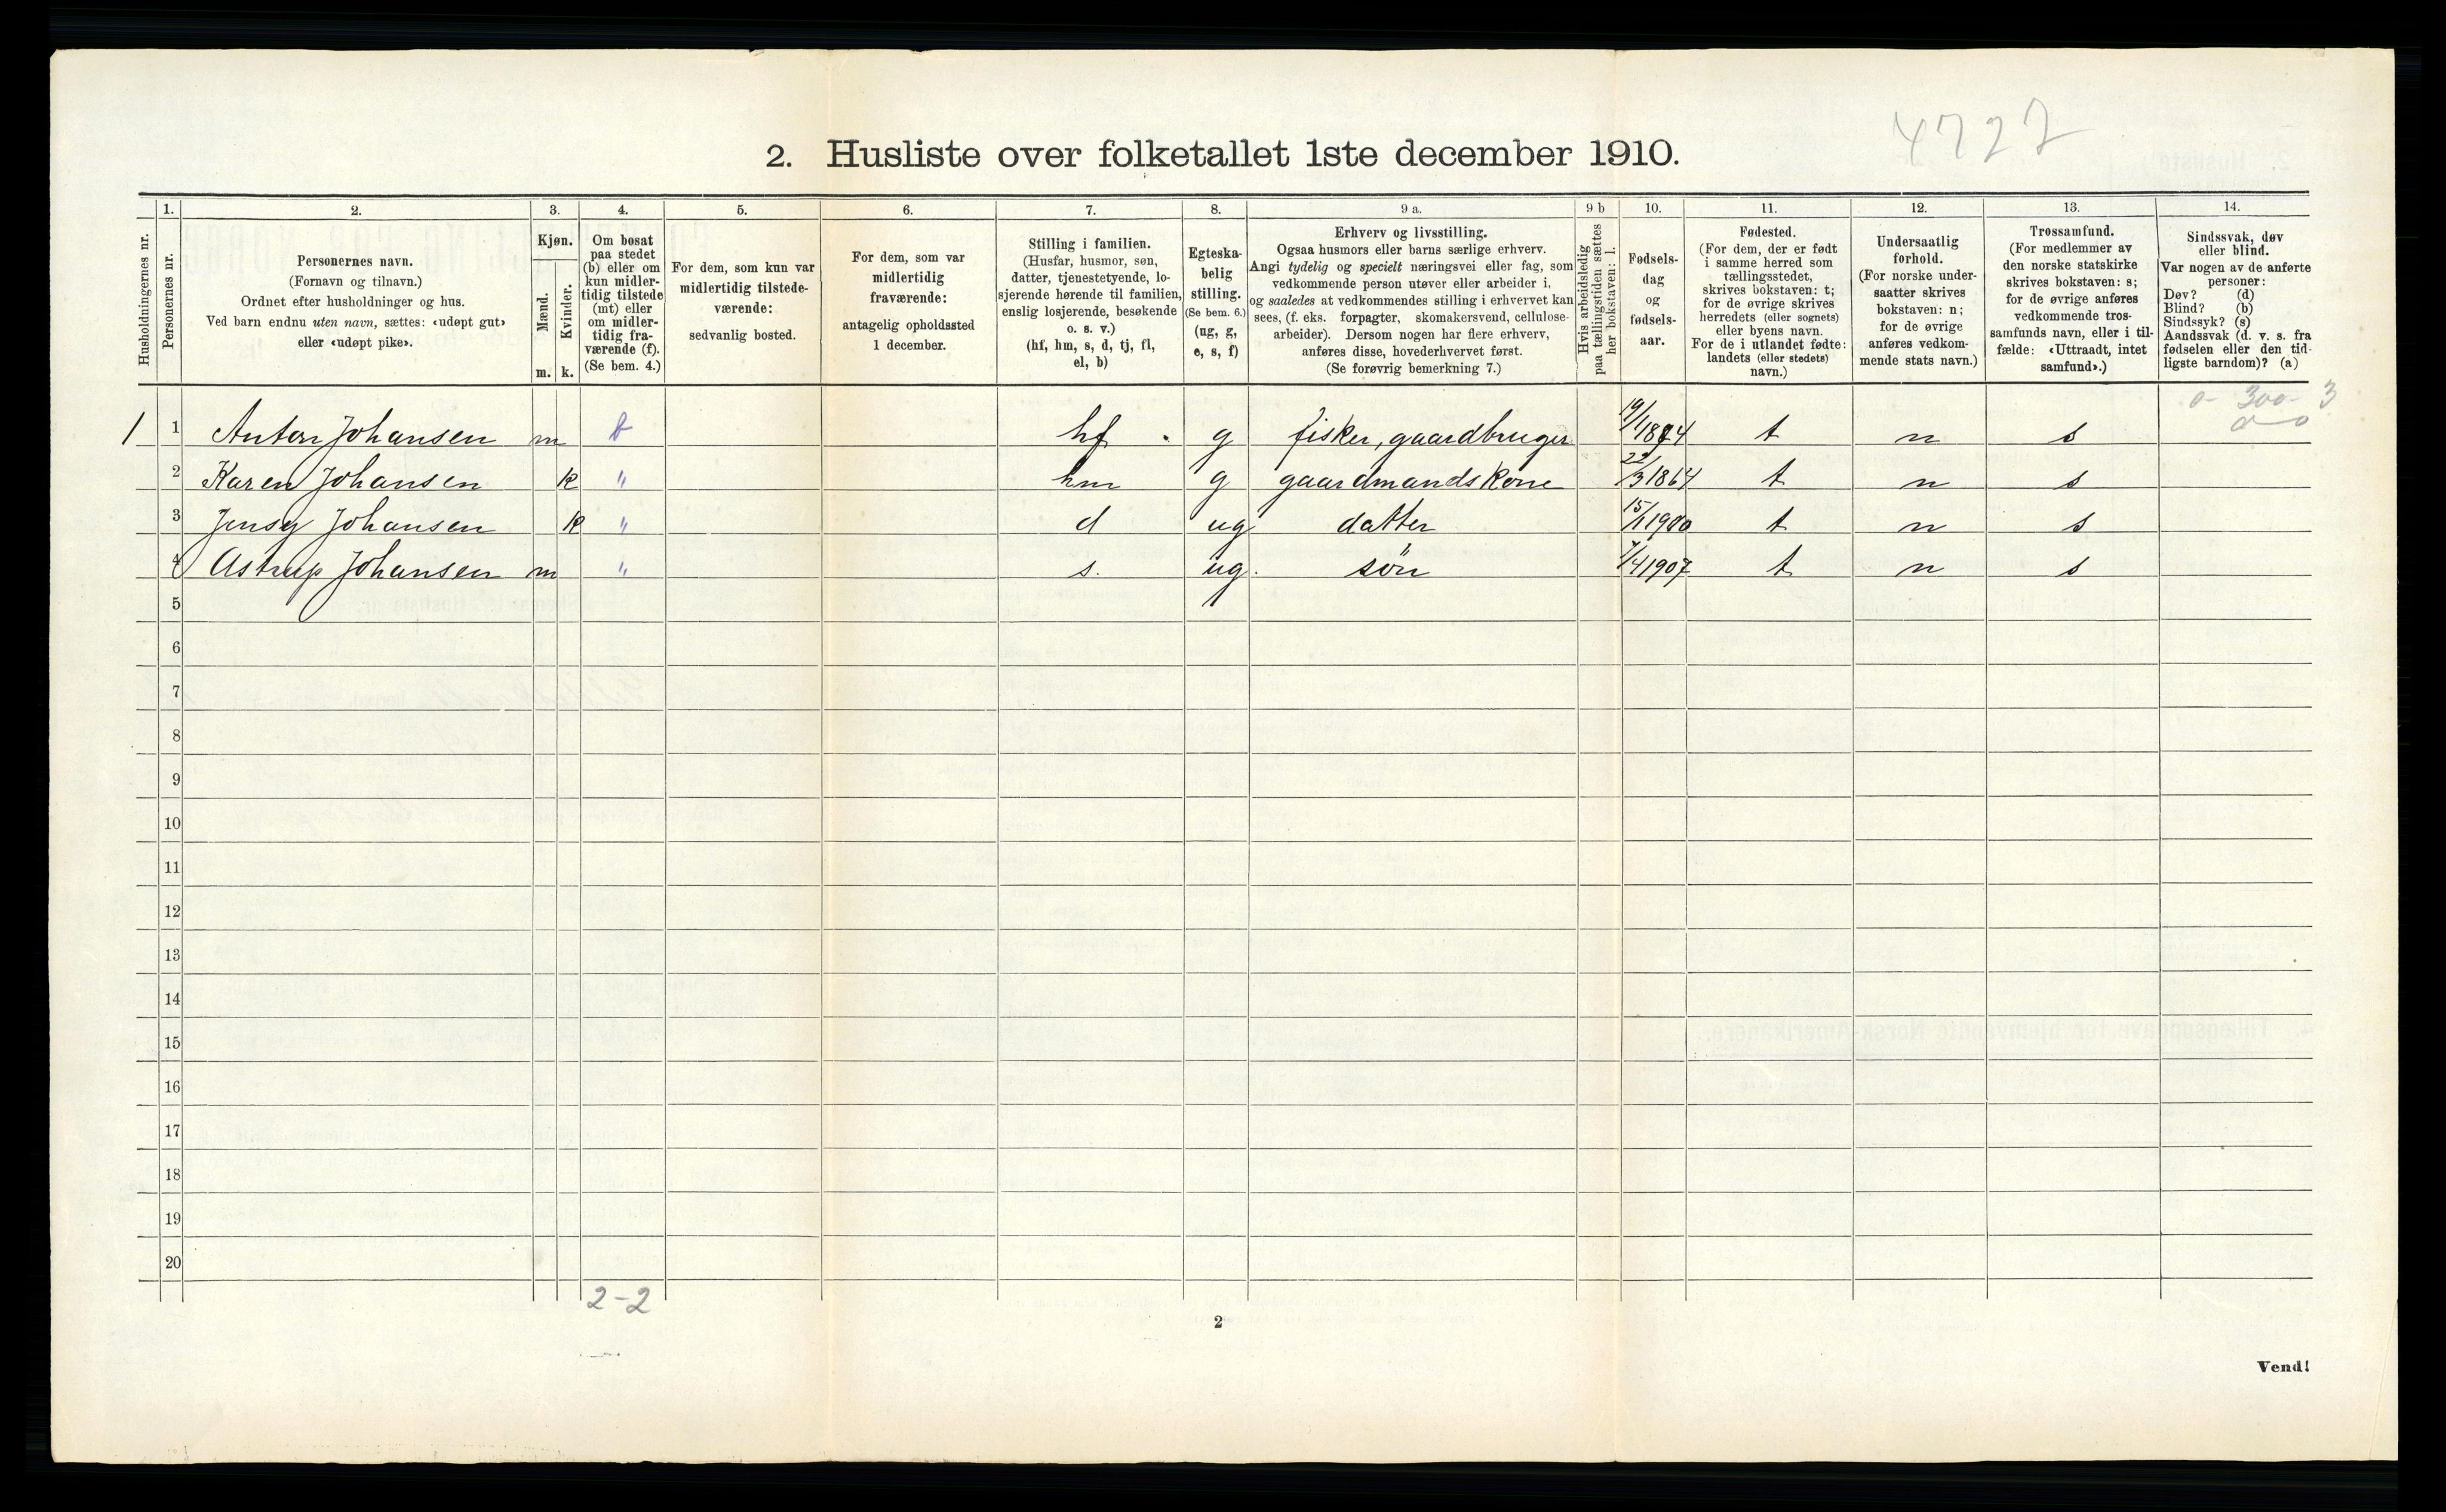 4727
2. Husliste over folketallet 1ste december 1910.
Husholdningernes nr.
1.
Personernes nr.
2.
Personernes navn.
(Fornavn og tilnavn.)
Ordnet efter husholdninger og hus.
Ved barn endnu uten navn, sættes: «udøpt gut»
eller «udøpt pike».
3.
Kjøn.
Mænd.
Kvinder.
m. k.
4.
Om bosat
paa stedet
(b) eller om
kun midler-
tidig tilstede
(mt) eller
om midler-
tidig fra-
værende (f).
(Se bem. 4.)
5.
For dem, som kun var
midlertidig tilstede-
værende:
sedvanlig bosted.
6.
For dem, som var
midlertidig
fraværende:
antagelig opholdssted
1 december.
7.
Stilling i familien.
(Husfar, husmor, søn,
datter, tjenestetyende, lo-
sjerende hørende til familien,
enslig losjerende, besøkende
o. s. v.)
(hf, hm, s, d, tj, fl,
el, b)
8.
Egteska-
belig
stilling.
(Se bem. 6.)
(ug, g,
e, s, f)
9 a.
Erhverv og livsstilling.
Ogsaa husmors eller barns særlige erhverv.
Angi tydelig og specielt næringsvei eller fag, som
vedkommende person utøver eller arbeider i,
og saaledes at vedkommendes stilling i erhvervet kan
sees, (f. eks. forpagter, skomakersvend, cellulose-
arbeider). Dersom nogen har flere erhverv,
anføres disse, hovederhvervet først.
(Se forøvrig bemerkning 7.)
9 b
Hvis arbeidsledig
paa tællingstiden sættes
her bokstaven: l.
10.
Fødsels-
dag
og
fødsels-
aar.
11.
Fødested.
(For dem, der er født
i samme herred som
tællingsstedet,
skrives bokstaven: t;
for de øvrige skrives
herredets (eller sognets)
eller byens navn.
For de i utlandet fødte:
landets (eller stedets)
navn.)
12.
Undersaatlig
forhold.
(For norske under-
saatter skrives
bokstaven: n;
for de øvrige
anføres vedkom-
mende stats navn.)
13.
Trossamfund.
(For medlemmer av
den norske statskirke
skrives bokstaven: s;
for de øvrige anføres
vedkommende tros-
samfunds navn, eller i til-
fælde: «Uttraadt, intet
samfund».)
14.
Sindssvak, døv
eller blind.
Var nogen av de anførte
personer:
Døv? (d)
Blind? (b)
Sindssyk? (s)
Aandssvak (d. v. s. fra
fødselen eller den tid-
ligste barndom)? (a)
0- 300- 3
1 1 Anton Johansen m b hf g fisker, gaardbruger t n s
2 Karen Johansen k " hm g gaardmandskone 22/3 1864 t n s
3 Jensy Johansen k " d ug datter 15/1 1900 t n s
4 Astrup Johansen m " s. ug. søn 7/4 1907 t n s
5
6
7
8
9
10
11
12
13
14
15
16
17
18
19
20
2-2
2
Vend!